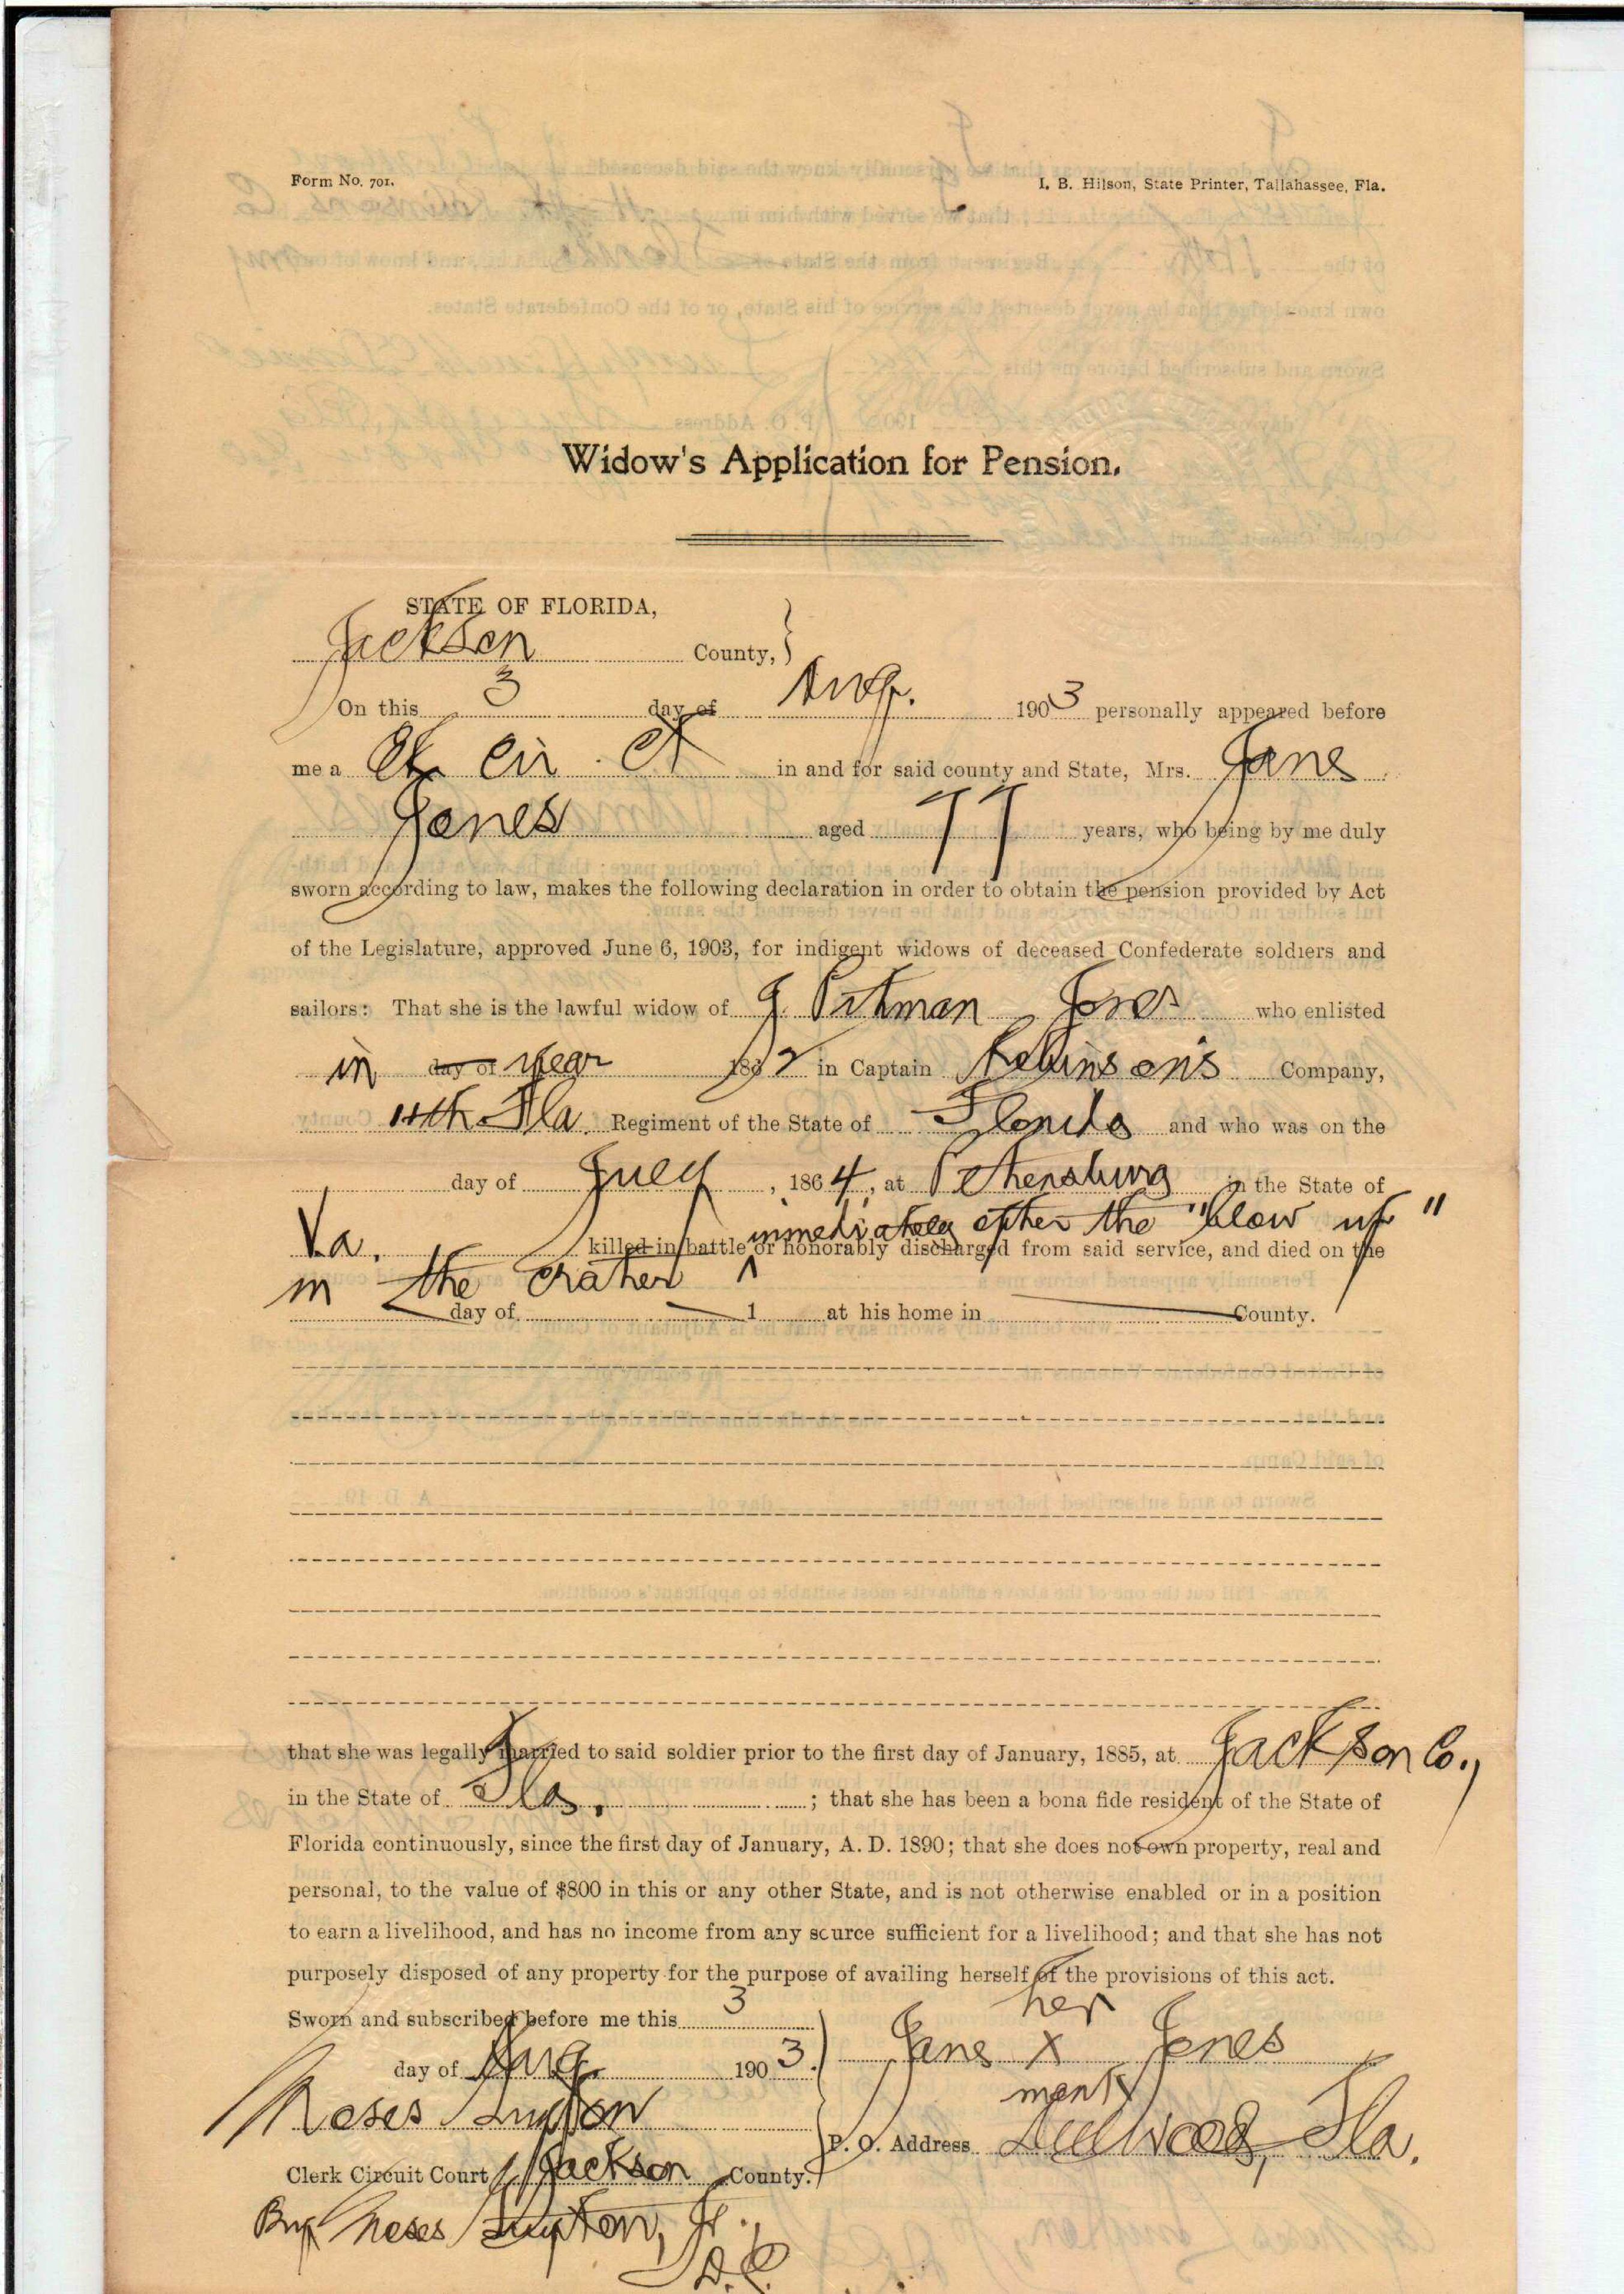 Form No. 701.
I. B. Hilson, State Printer, Tallahassee, Fla.
Widow's Application for Pension.
STATE OF FLORIDA,
Jackson County,
On this 3 day of Aug. 1903 personally appeared before
me a Clk Cir. Ct in and for said county and State, Mrs. Jane
Jones aged 77 years, who being by me duly
sworn according to law, makes the following declaration in order to obtain the pension provided by Act
of the Legislature, approved June 6, 1903, for indigent widows of deceased Confederate soldiers and
sailors: That she is the lawful widow of J. Pitman Jones who enlisted
in day of year 1862 in Captain Robinson's Company,
11th Fla. Regiment of the State of Florida and who was on the
day of July, 1864, at Petersburg in the State of
immediately after the "blow up"
Va. killed in battle or honorably discharged from said service, and died on the
in the Crater
day of 1 at his home in County.
that she was legally married to said soldier prior to the first day of January, 1885, at Jackson Co.,
in the State of Fla. ; that she has been a bona fide resident of the State of
Florida continuously, since the first day of January, A. D. 1890; that she does not own property, real and
personal, to the value of $800 in this or any other State, and is not otherwise enabled or in a position
to earn a livelihood, and has no income from any source sufficient for a livelihood; and that she has not
purposely disposed of any property for the purpose of availing herself of the provisions of this act.
Sworn and subscribed before me this 3
her
day of Aug. 1903.
Jane X Jones
mark
Moses Guyton
P. O. Address Dellwood, Fla.
Clerk Circuit Court Jackson County.
By Moses Guyton, Jr.,
D.C.